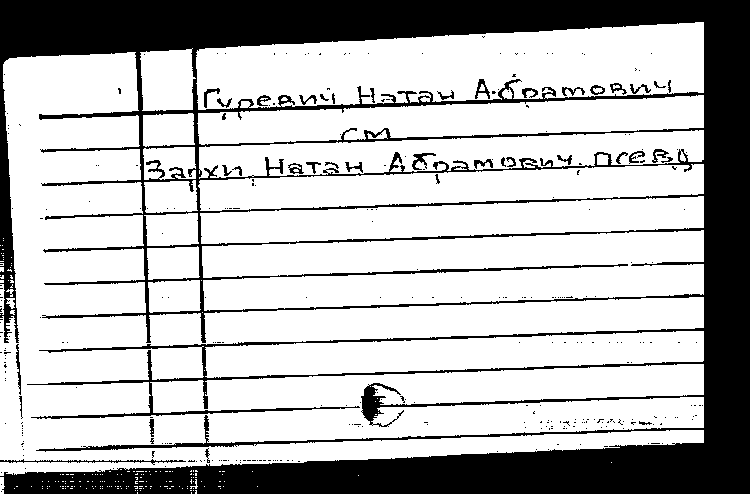 Гуревич, Натан Абрамович
см
Зархи, Натан Абрамович, псевд